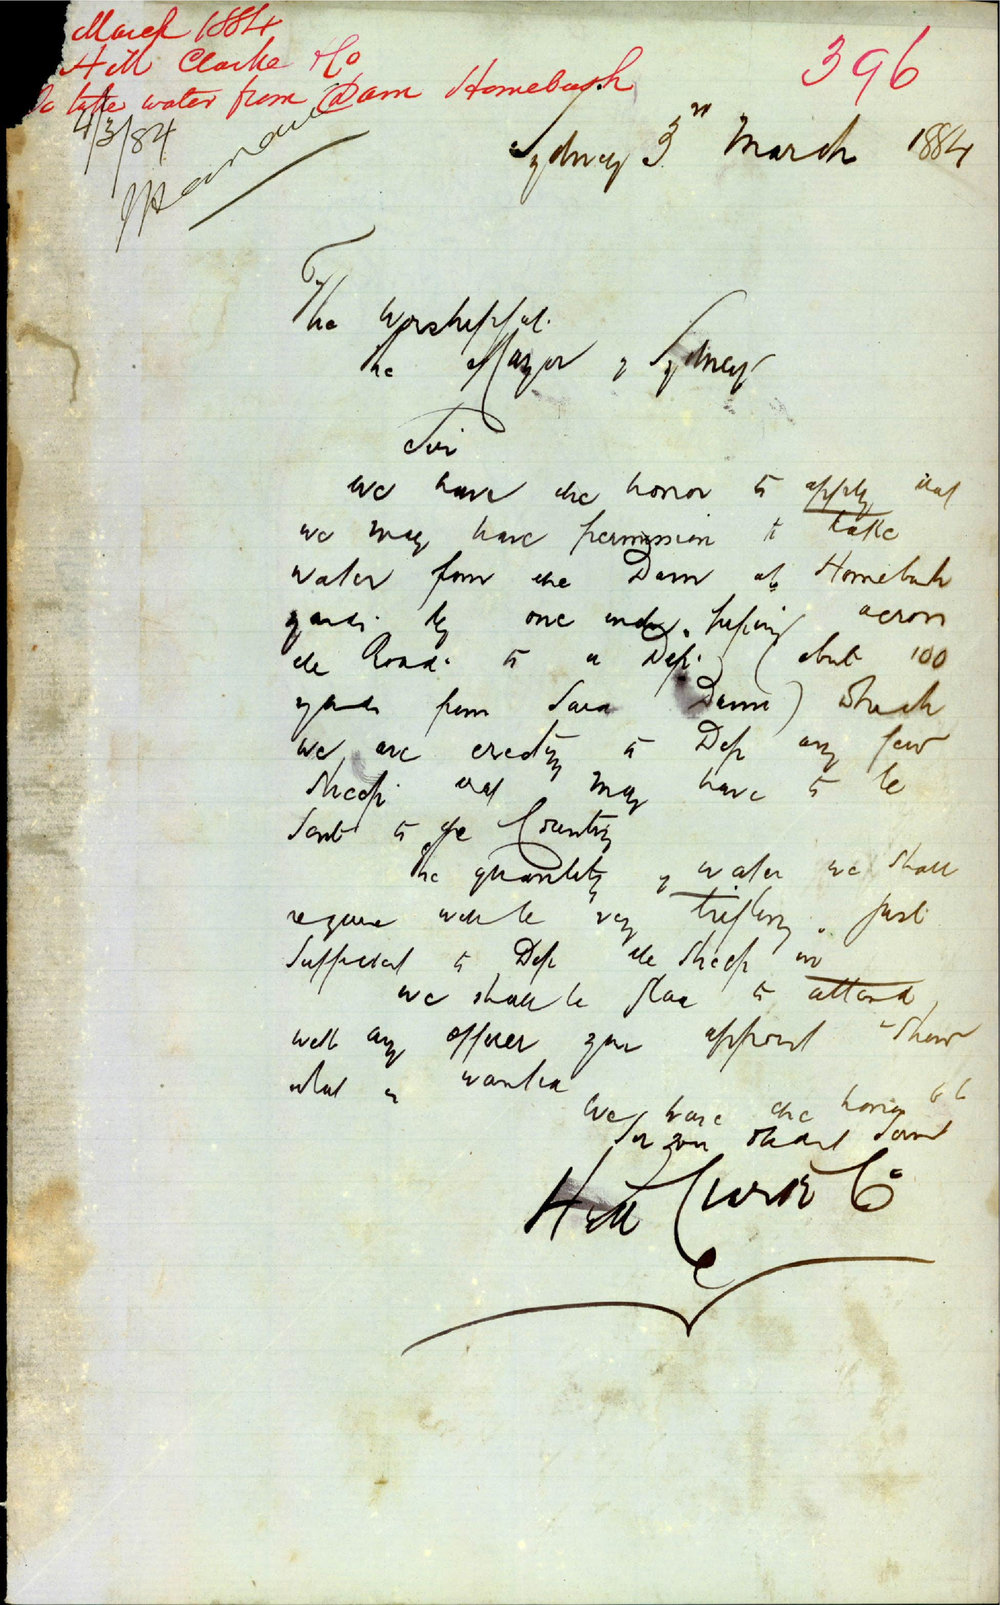 March 1884
Hill Clarke & Co
To take water from Dam Homebush
396
4/3/84
Sydney 3rd March 1884
The Worshipful
The Mayor of Sydney
Sir
We have the honor to apply that
we may have permission to take
water from the Dam at Homebush
yards by one inch piping across
the Road to a Dip (about 100
yards from said Dam) which
we are erecting to Dip any few
Sheep that may have to be
sent to the Country
The quantity of water we shall
require will be very trifling, just
sufficient to Dip the Sheep in
We shall be glad to attend
with any officer you appoint & show
what is wanted
We have the honor to be
Sir your obedient Servts
Hill Clark & Co